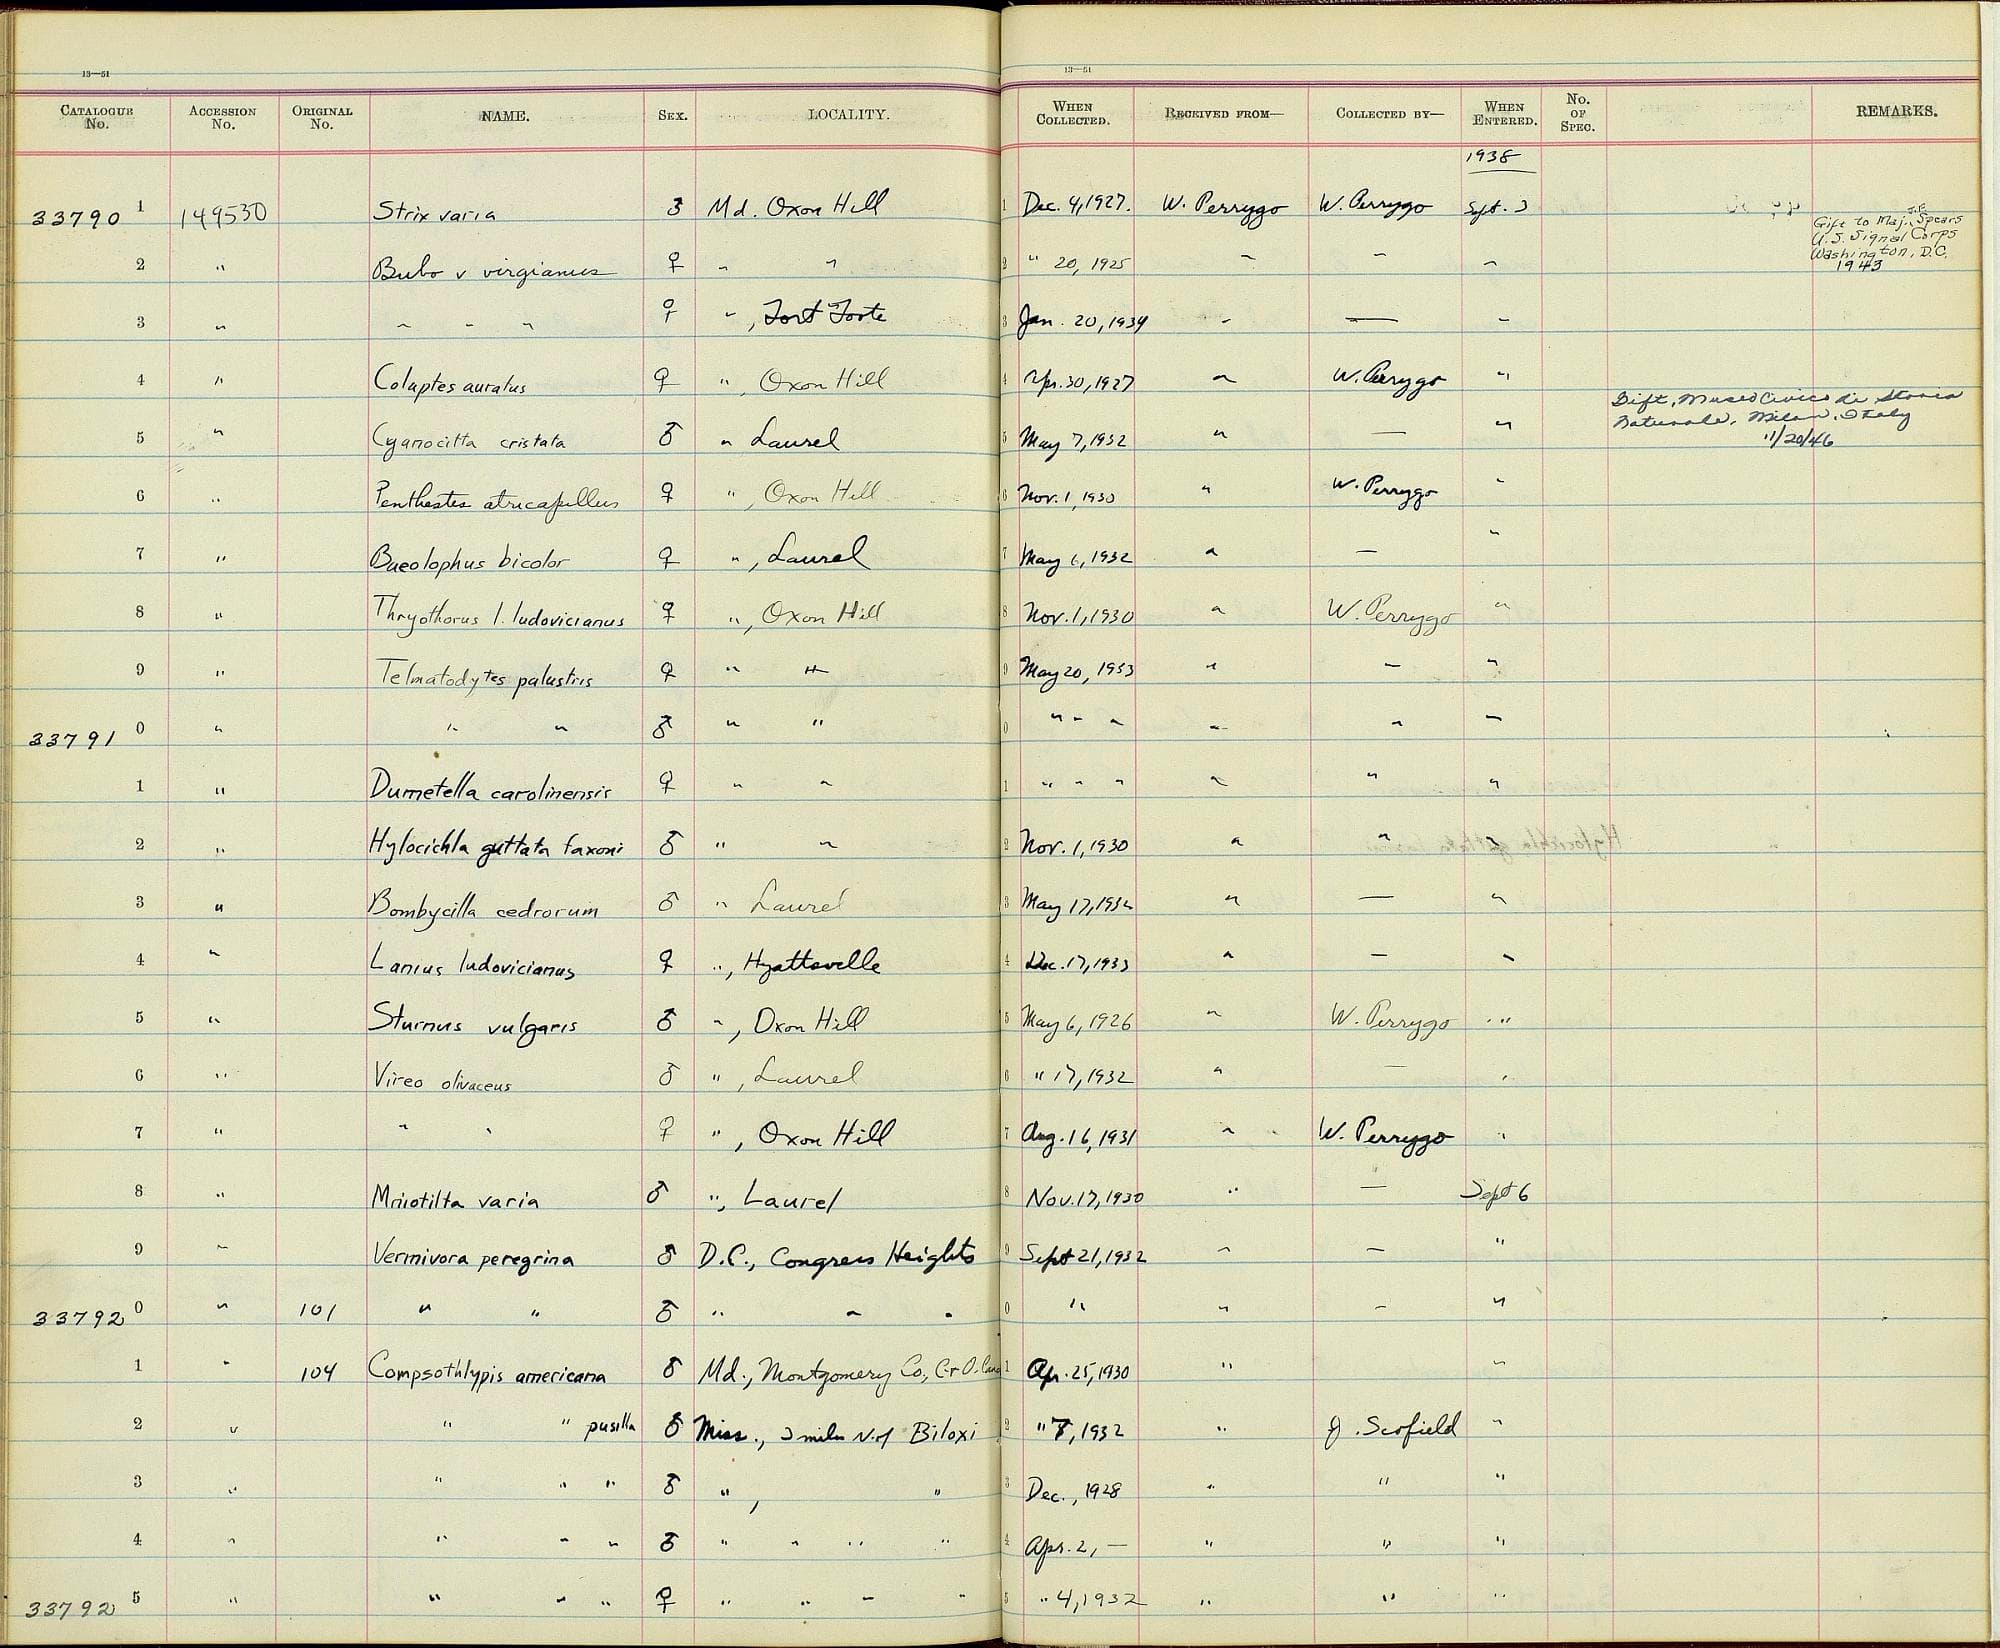 13—51 13—51
CATALOGUE No. ACCESSION No. ORIGINAL No. NAME. SEX. LOCALITY. WHEN COLLECTED. RECEIVED FROM— COLLECTED BY— WHEN ENTERED. No. OF SPEC. REMARKS.
1938
33790 1 149530 Strix varia ♂ Md. Oxon Hill 1 Dec. 4, 1927. W. Perrygo W. Perrygo Sept. 3
Gift to Maj. J.F. Spears
U.S. Signal Corps
Washington, D.C.
1943
2 " Bubo v virgianus ♀ " " 2 " 20, 1925 " " "
3 " " " " ♀ ", Fort Foote 3 Jan. 20, 1934 " — "
4 " Colaptes auratus ♀ ", Oxon Hill 4 Apr. 30, 1927 " W. Perrygo "
Gift, Museo Civico di Storia
Naturale, Milan, Italy
11/20/46
5 " Cyanocitta cristata ♂ " Laurel 5 May 7, 1932 " — "
6 " Penthestes atricapillus ♀ ", Oxon Hill 6 Nov. 1, 1930 " W. Perrygo "
7 " Baeolophus bicolor ♀ ", Laurel 7 May 6, 1932 " — "
8 " Thryothorus l. ludovicianus ♀ ", Oxon Hill 8 Nov. 1, 1930 " W. Perrygo "
9 " Telmatodytes palustris ♀ " " 9 May 20, 1933 " — "
33791 0 " " " ♂ " " 0 " " " " " "
1 " Dumetella carolinensis ♀ " " 1 " " " " " "
2 " Hylocichla guttata faxoni ♂ " " 2 Nov. 1, 1930 " " "
3 " Bombycilla cedrorum ♂ " Laurel 3 May 17, 1932 " — "
4 " Lanius ludovicianus ♀ ", Hyattsville 4 Dec. 17, 1933 " — "
5 " Sturnus vulgaris ♂ ", Oxon Hill 5 May 6, 1926 " W. Perrygo "
6 " Vireo olivaceus ♂ ", Laurel 6 " 17, 1932 " — "
7 " " " ♀ ", Oxon Hill 7 Aug. 16, 1931 " W. Perrygo "
8 " Mniotilta varia ♂ ", Laurel 8 Nov. 17, 1930 " — Sept 6
9 " Vermivora peregrina ♂ D.C., Congress Heights 9 Sept 21, 1932 " — "
33792 0 " 101 " " ♂ " " " 0 " " — "
1 " 104 Compsothlypis americana ♂ Md., Montgomery Co., C+O. Canal 1 Apr. 25, 1930 " "
2 " " " pusilla ♂ Miss., 3 miles N. of Biloxi 2 " 7, 1932 " J. Scofield "
3 " " " " ♂ ", " 3 Dec., 1928 " " "
4 " " " " ♂ " " " " 4 Apr. 2, — " " "
33792 5 " " " " ♀ " " " " 5 " 4, 1932 " " "